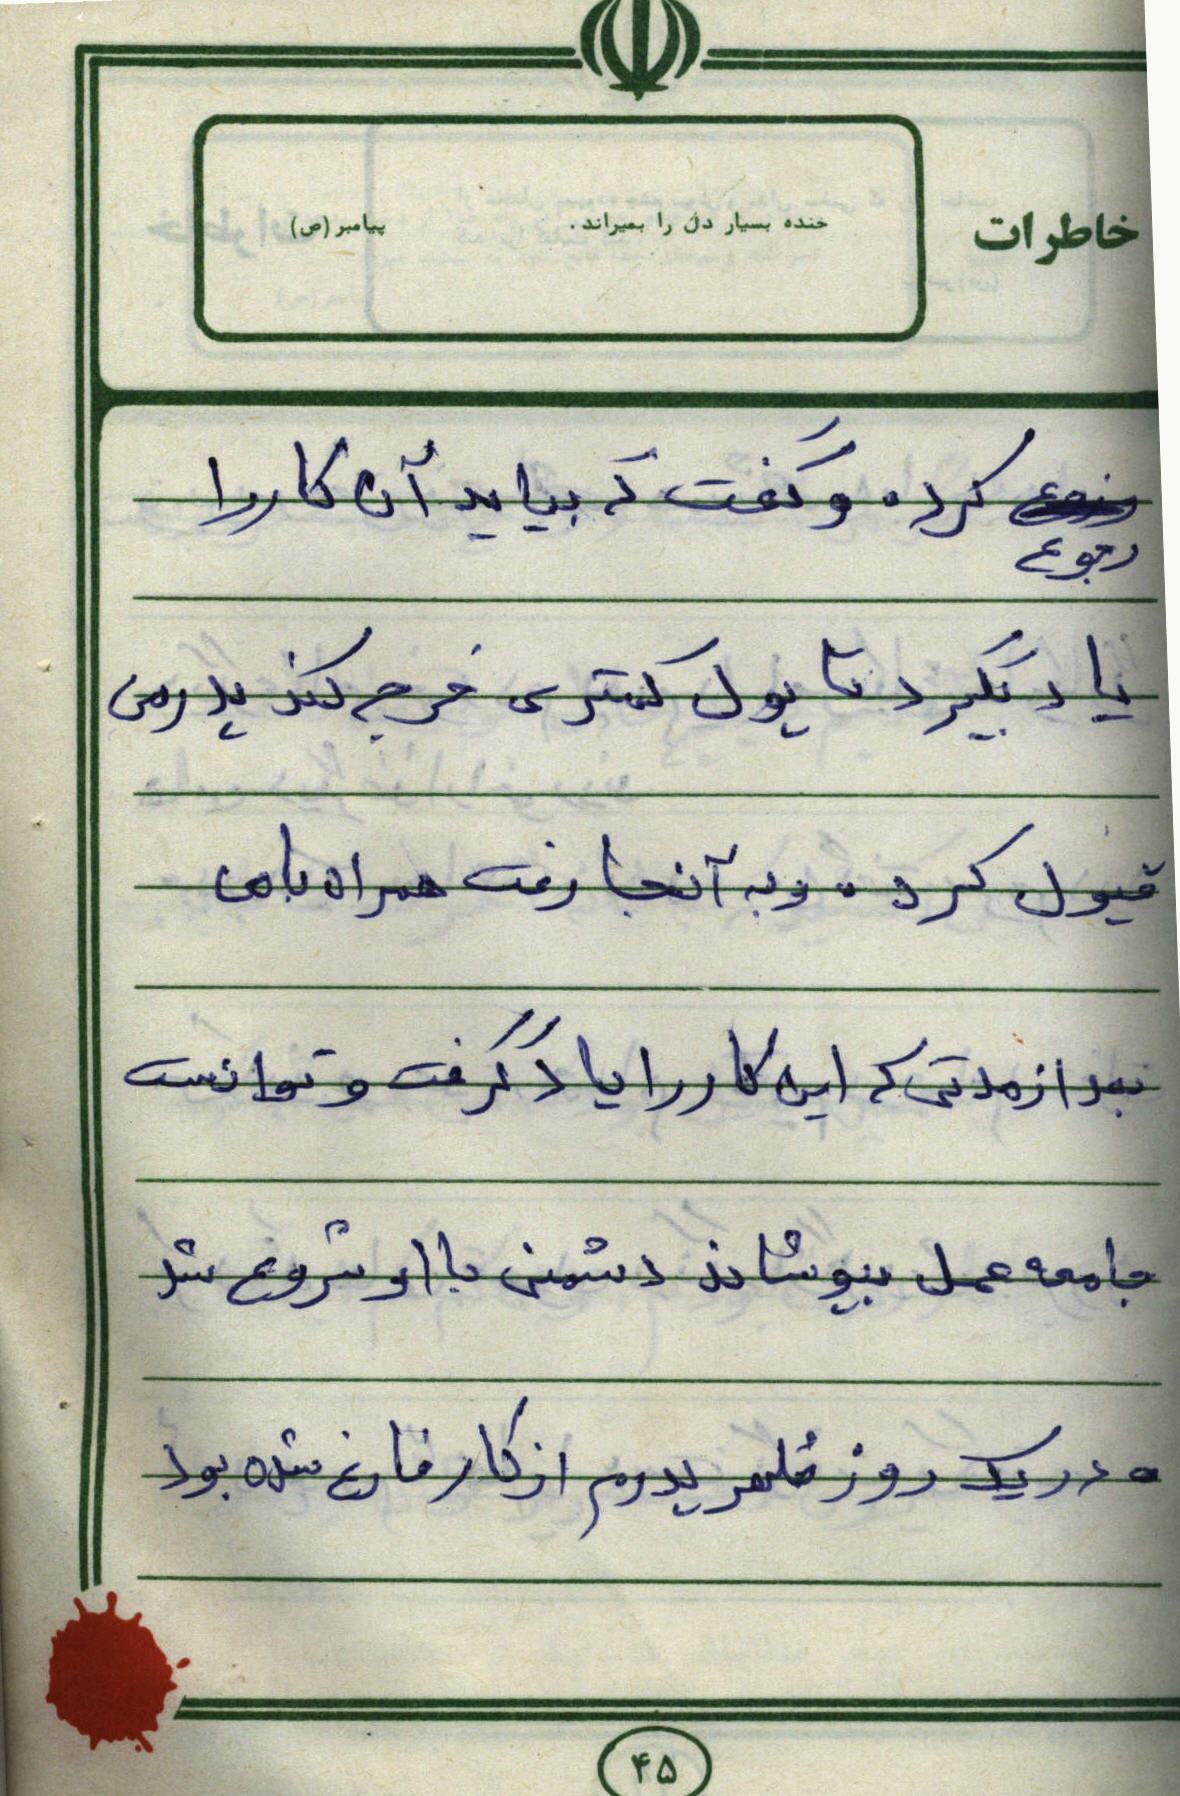 خاطرات
خنده بسیار دل را بمیراند. پیامبر (ص)
کرده و گفت که بیاید آن کار را
رجوع
یاد بگیرد تا پول کمتری خرج کند پدر من
قبول کرده و به آنجا رفت همراه با من
بعد از مدتی که این کار را یاد گرفت و توانست
جامعه عمل بپوشاند دشمنی با او شروع شد
ه در یک روز ظهر پدرم از کار فارغ شده بود
۴۵